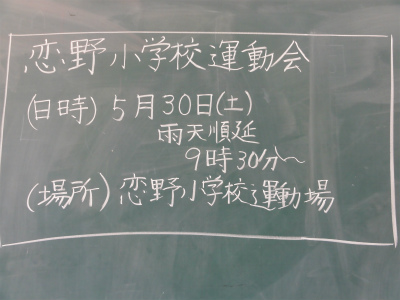 恋野小学校運動会
(日時) 5月30日(土)
雨天順延
9時30分～
(場所) 恋野小学校運動場